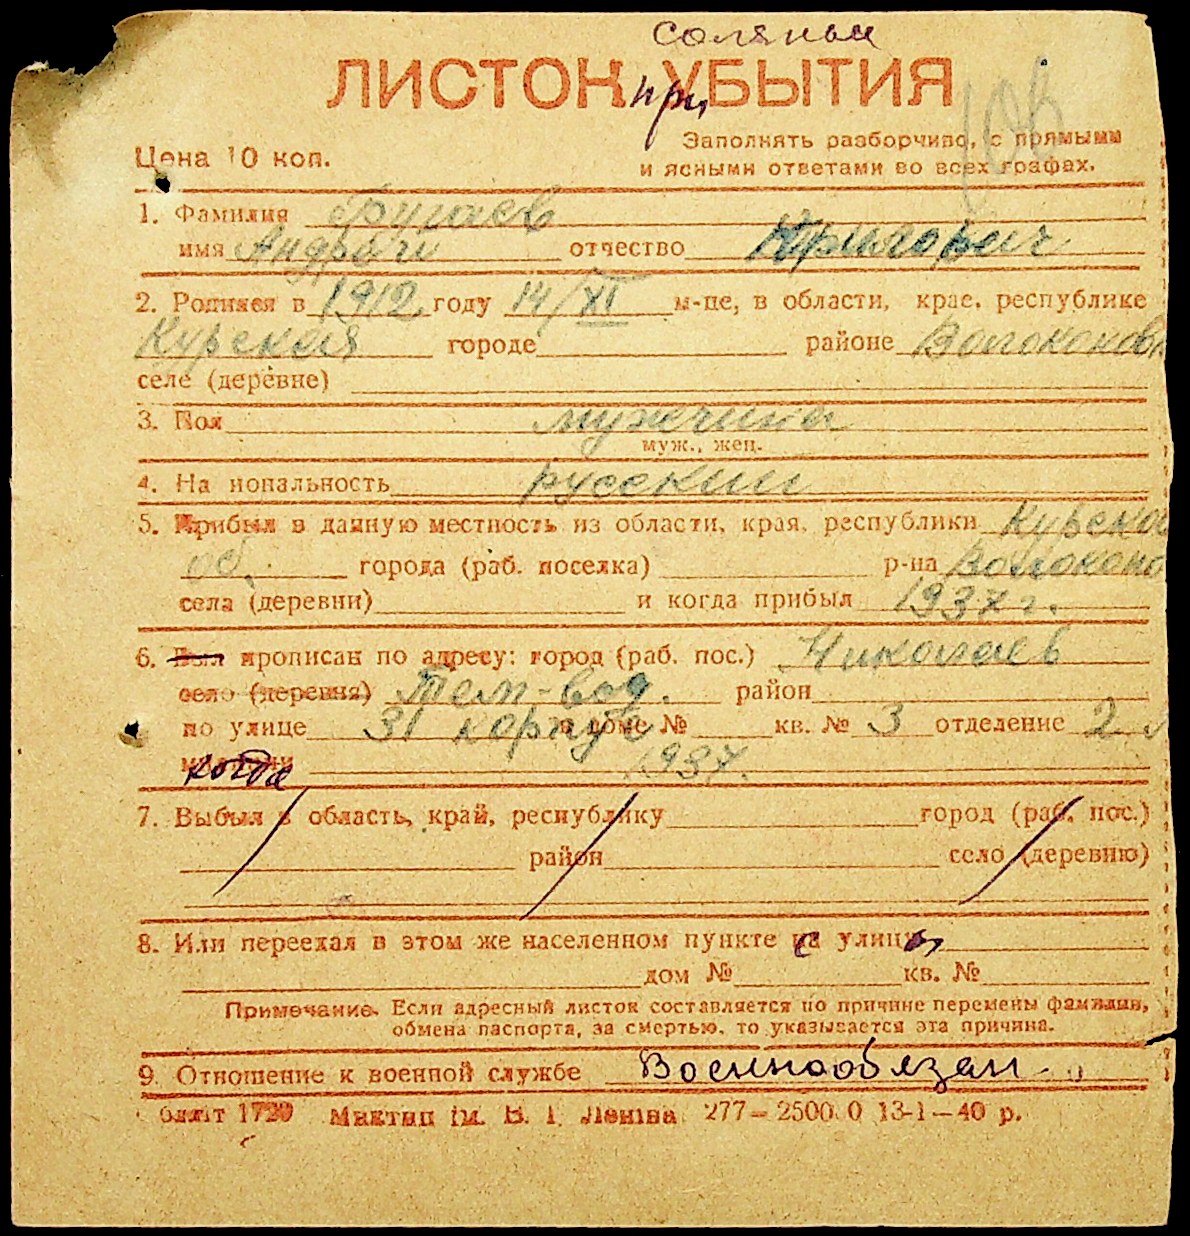 Соляные
ЛИСТОК УБЫТИЯ
при
Заполнять разборчиво, с прямыми
Цена 10 коп.
и ясными ответами во всех графах.
1. Фамилия
имя Андрей отчество
2. Родился в 1912 году 14/XI м-це, в области, крае, республике
Курская городе районе Волоконов
селе (деревне)
3. Пол мужчина
муж., жен.
4. На иональность русский
5. Прибыл в данную местность из области, края, республики Курской
об. города (раб. поселка) р-на Волоконо
села (деревни) и когда прибыл 1937 г.
6. Был прописан по адресу: город (раб. пос.) Николаев
село (деревня) Тем-вод. район
по улице 31 корпус в доме № кв. № 3 отделение 2
когда 1937.
7. Выбыл в область, край, республику город (раб. пос.)
район село (деревню)
8. Или переехал в этом же населенном пункте с улицы
дом № кв. №
Примечание. Если адресный листок составляется по причине перемены фамилии,
обмена паспорта, за смертью, то указывается эта причина.
9. Отношение к военной службе Военнообязан
1720 ім. В. І. Леніна 277—2500 0 13-1—40 р.